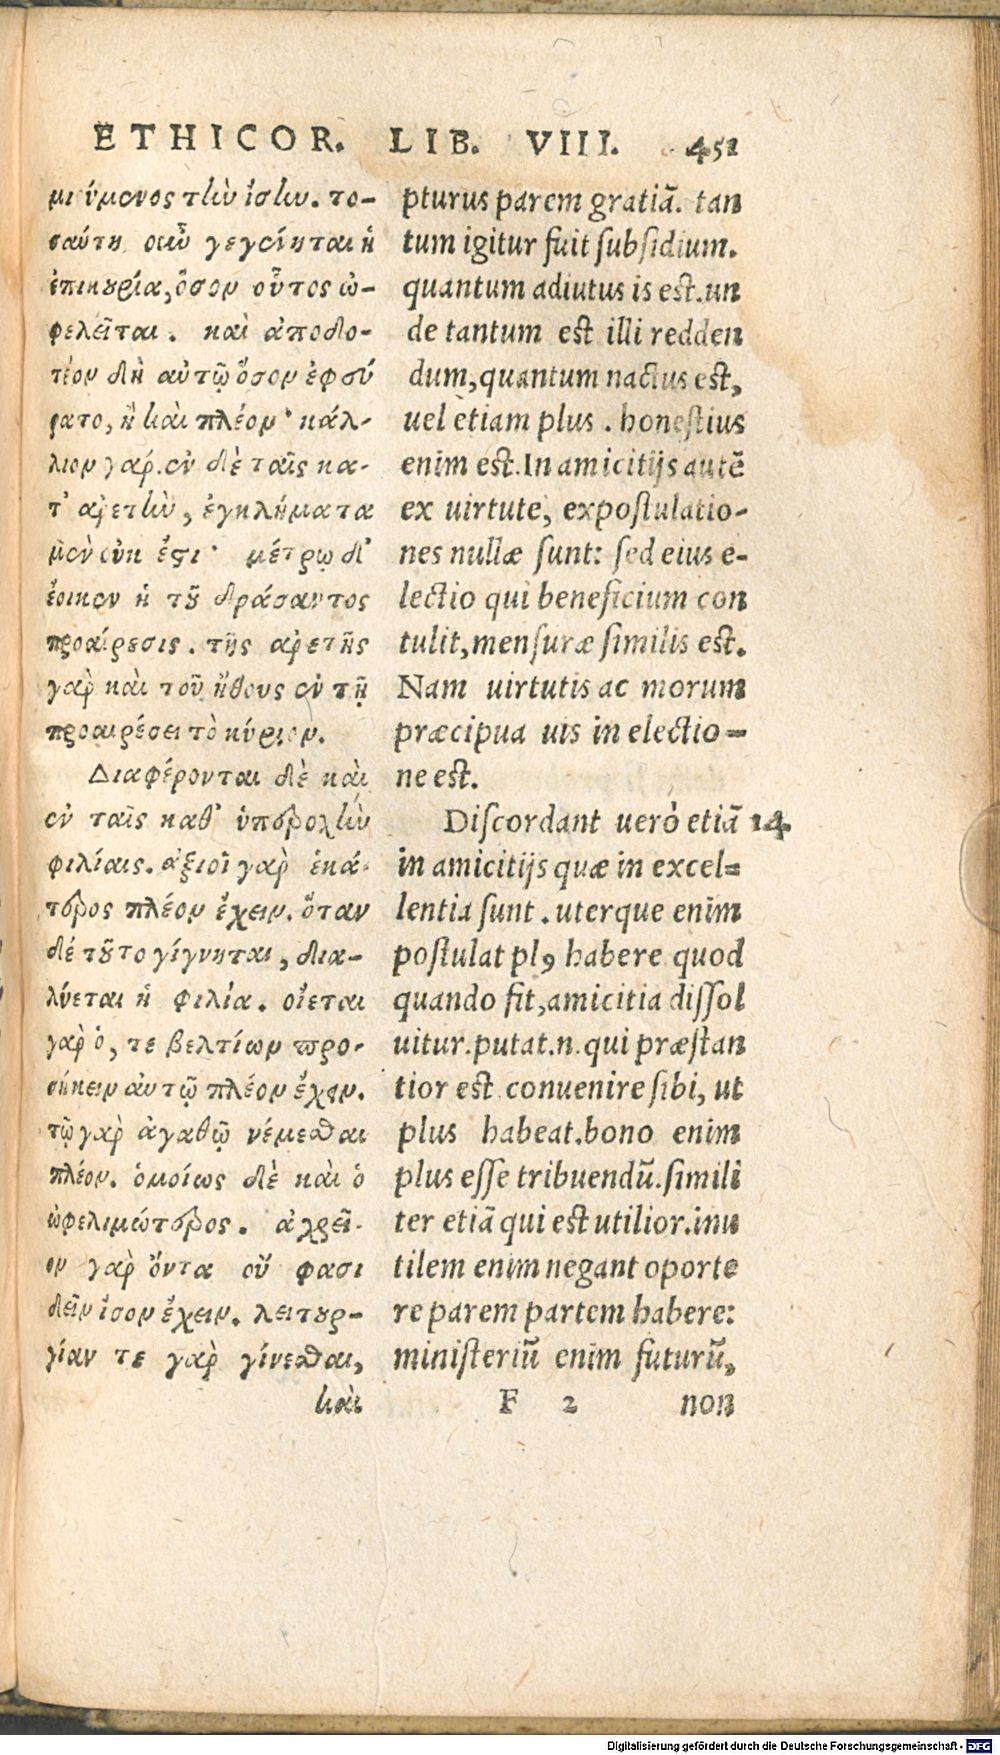 ETHICOR. LIB. VIII. 451
μιούμενος τὴν ἴσην. το-
σαύτη οὖν γεγένηται ἡ
ἐπικουρία, ὅσον οὗτος ὠ-
φελεῖται. καὶ ἀποδο-
τέον δὴ αὐτῷ ὅσον ἐπηύ
ρατο, ἢ καὶ πλέον· κάλ-
λιον γάρ. ἐν δὲ ταῖς κα-
τ' ἀρετὴν, ἐγκλήματα
μὲν οὐκ ἔστι· μέτρῳ δ'
ἔοικεν ἡ τοῦ δράσαντος
προαίρεσις. τῆς ἀρετῆς
γὰρ καὶ τοῦ ἤθους ἐν τῇ
προαιρέσει τὸ κύριον.
Διαφέρονται δὲ καὶ
ἐν ταῖς καθ' ὑπεροχὴν
φιλίαις. ἀξιοῖ γὰρ ἑκά-
τερος πλέον ἔχειν. ὅταν
δὲ τοῦτο γίγνηται, δια-
λύεται ἡ φιλία. οἴεται
γὰρ ὁ, τε βελτίων προ-
σήκειν αὐτῷ πλέον ἔχειν.
τῷ γὰρ ἀγαθῷ νέμεσθαι
πλέον. ὁμοίως δὲ καὶ ὁ
ὠφελιμώτερος. ἀχρεῖ-
ον γὰρ ὄντα οὔ φασι
δεῖν ἴσον ἔχειν. λειτουρ-
γίαν τε γὰρ γίνεσθαι,
καὶ
pturus parem gratiā. tan
tum igitur fuit subsidium.
quantum adiutus is est. un
de tantum est illi redden
dum, quantum nactus est,
uel etiam plus. honestius
enim est. In amicitijs autē
ex uirtute, expostulatio-
nes nullæ sunt: sed eius e-
lectio qui beneficium con
tulit, mensuræ similis est.
Nam uirtutis ac morum
præcipua uis in electio-
ne est.
Discordant uerò etiā 14
in amicitijs quæ in excel-
lentia sunt. uterque enim
postulat plꝰ habere quod
quando fit, amicitia dissol
uitur. putat.n. qui præstan
tior est conuenire sibi, ut
plus habeat. bono enim
plus esse tribuendū. simili
ter etiā qui est utilior. inu
tilem enim negant oporte
re parem partem habere:
ministeriū enim futurū,
F 2 non
Digitalisierung gefördert durch die Deutsche Forschungsgemeinschaft - DFG